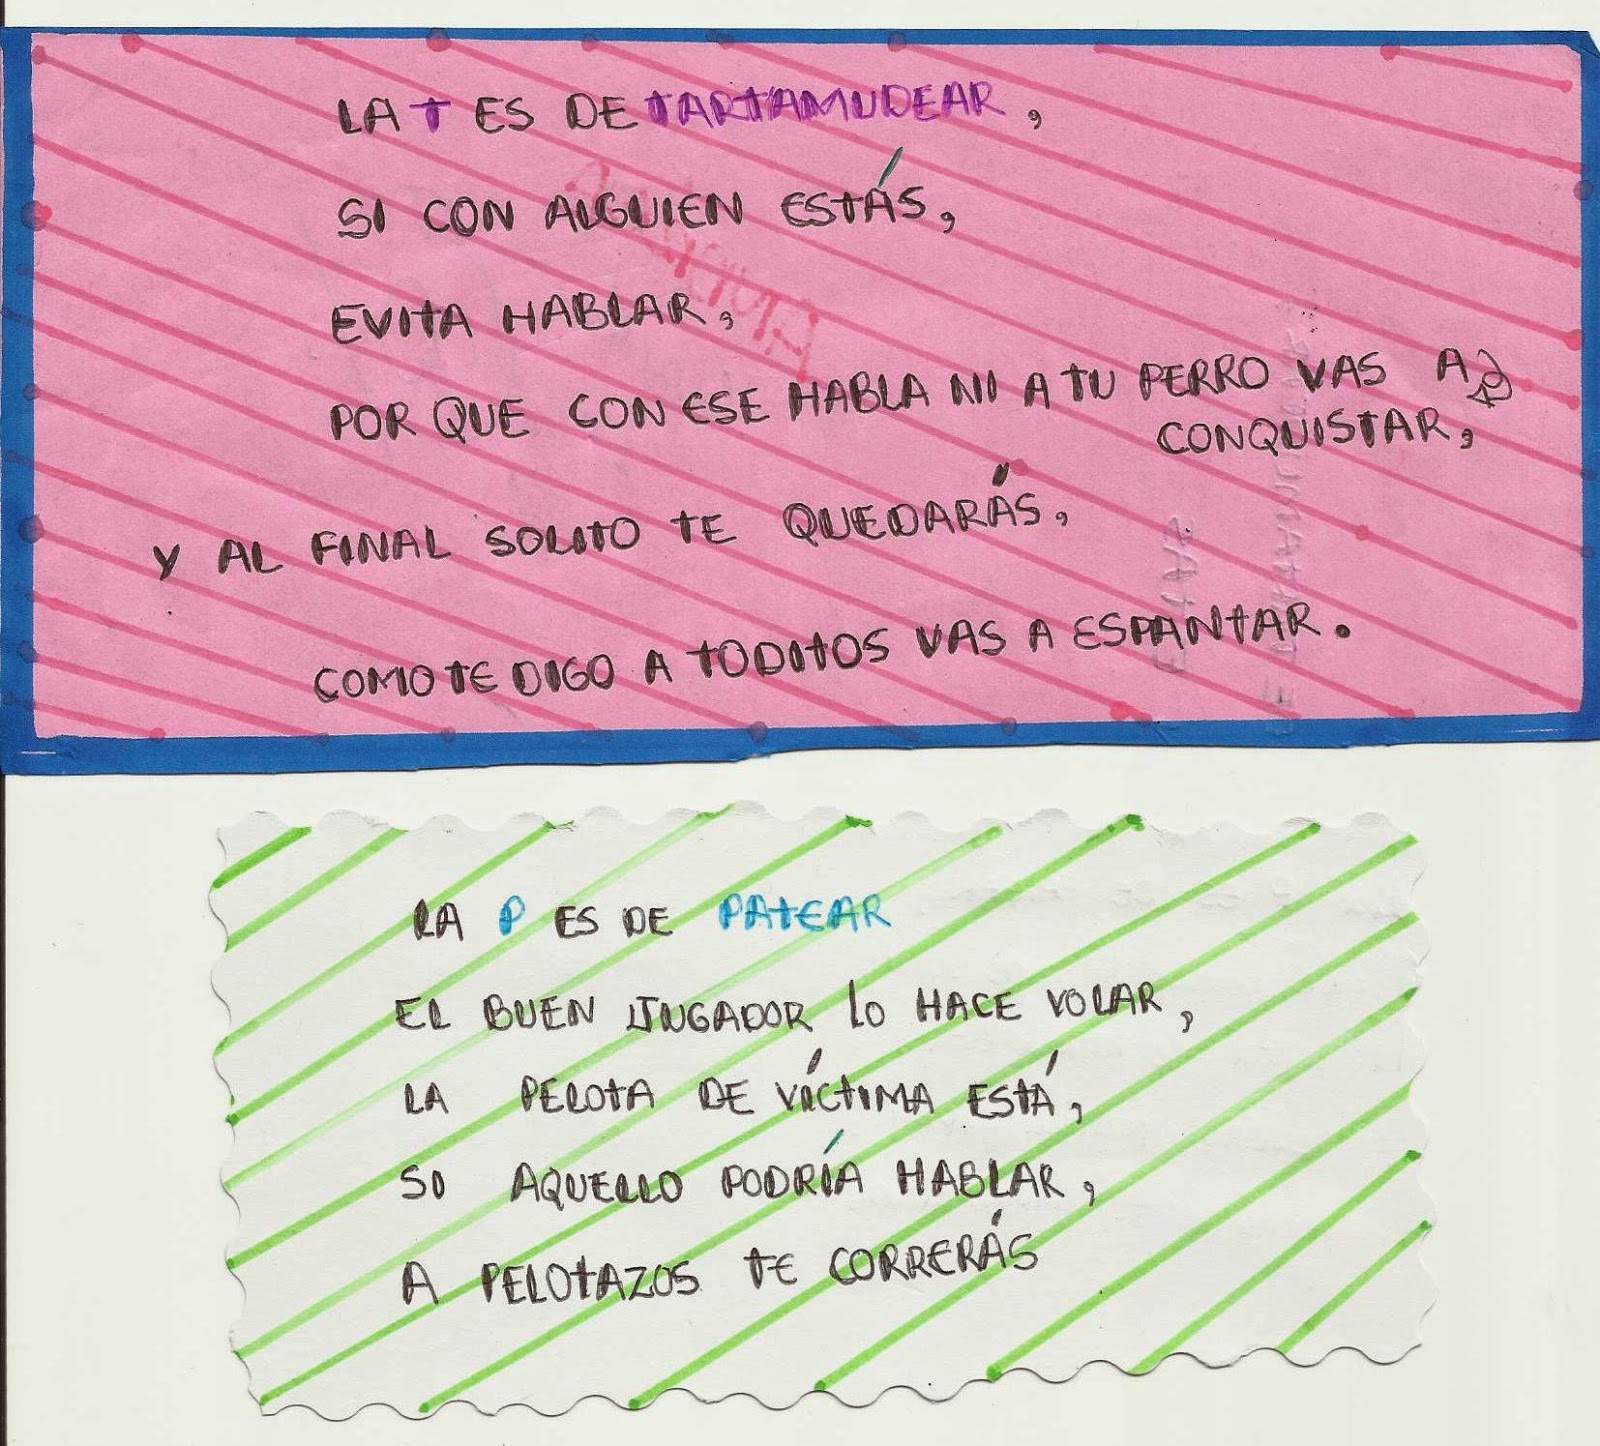 LA T ES DE TARTAMUDEAR,
SI CON ALGUIEN ESTÁS,
EVITA HABLAR,
POR QUE CON ESE HABLA NI A TU PERRO VAS A
CONQUISTAR,
Y AL FINAL SOLITO TE QUEDARÁS,
COMO TE DIGO A TODITOS VAS A ESPANTAR.
LA P ES DE PATEAR
EL BUEN JUGADOR LO HACE VOLAR,
LA PELOTA DE VÍCTIMA ESTÁ,
SI AQUELLO PODRÍA HABLAR,
A PELOTAZOS TE CORRERÁS